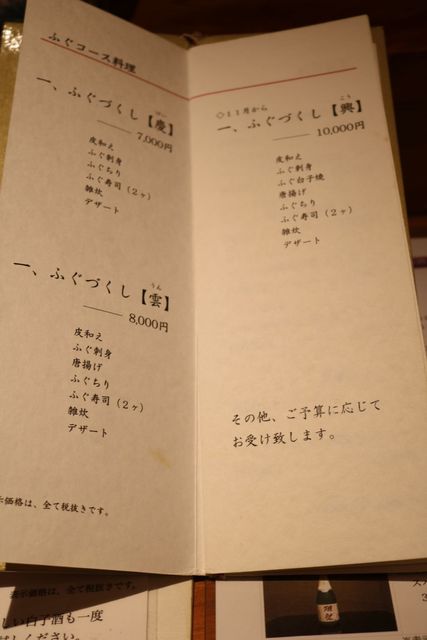 ふぐコース料理
一、ふぐづくし【慶】
けい
7,000円
皮和え
ふぐ刺身
ふぐちり
ふぐ寿司（２ヶ）
雑炊
デザート
一、ふぐづくし【雲】
うん
8,000円
皮和え
ふぐ刺身
唐揚げ
ふぐちり
ふぐ寿司（２ヶ）
雑炊
デザート
示価格は、全て税抜きです。
◇１１月から
一、ふぐづくし【興】
こう
10,000円
皮和え
ふぐ刺身
ふぐ白子焼
唐揚げ
ふぐちり
ふぐ寿司（２ヶ）
雑炊
デザート
その他、ご予算に応じて
お受け致します。
表示価格は、全て税抜きです。
しい白子酒も一度